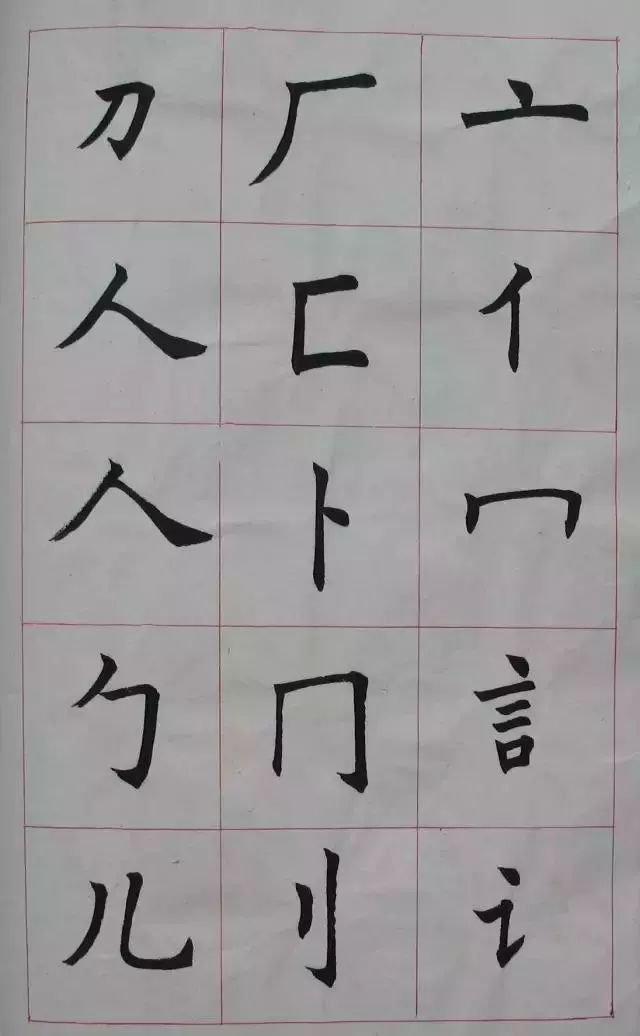 亠亻冖訁讠
厂匚卜冂刂
刀人人勹儿